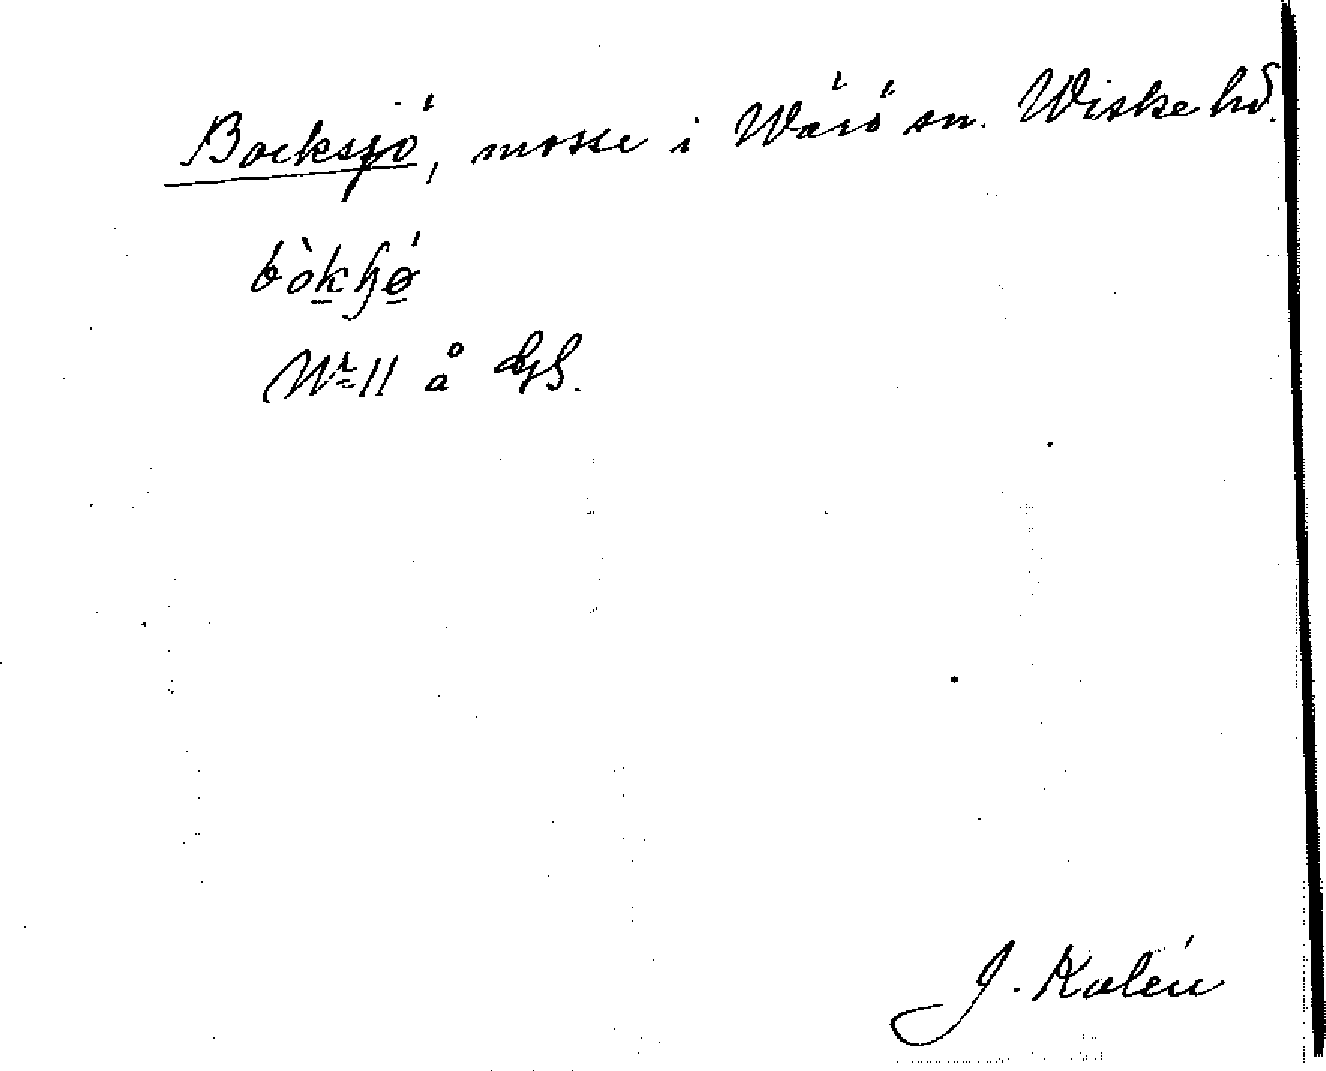 Backsjö, mosse i Wärö sn. Wiske hd.
bòkɧǿ̱
Nr 11 å
J. Kalén